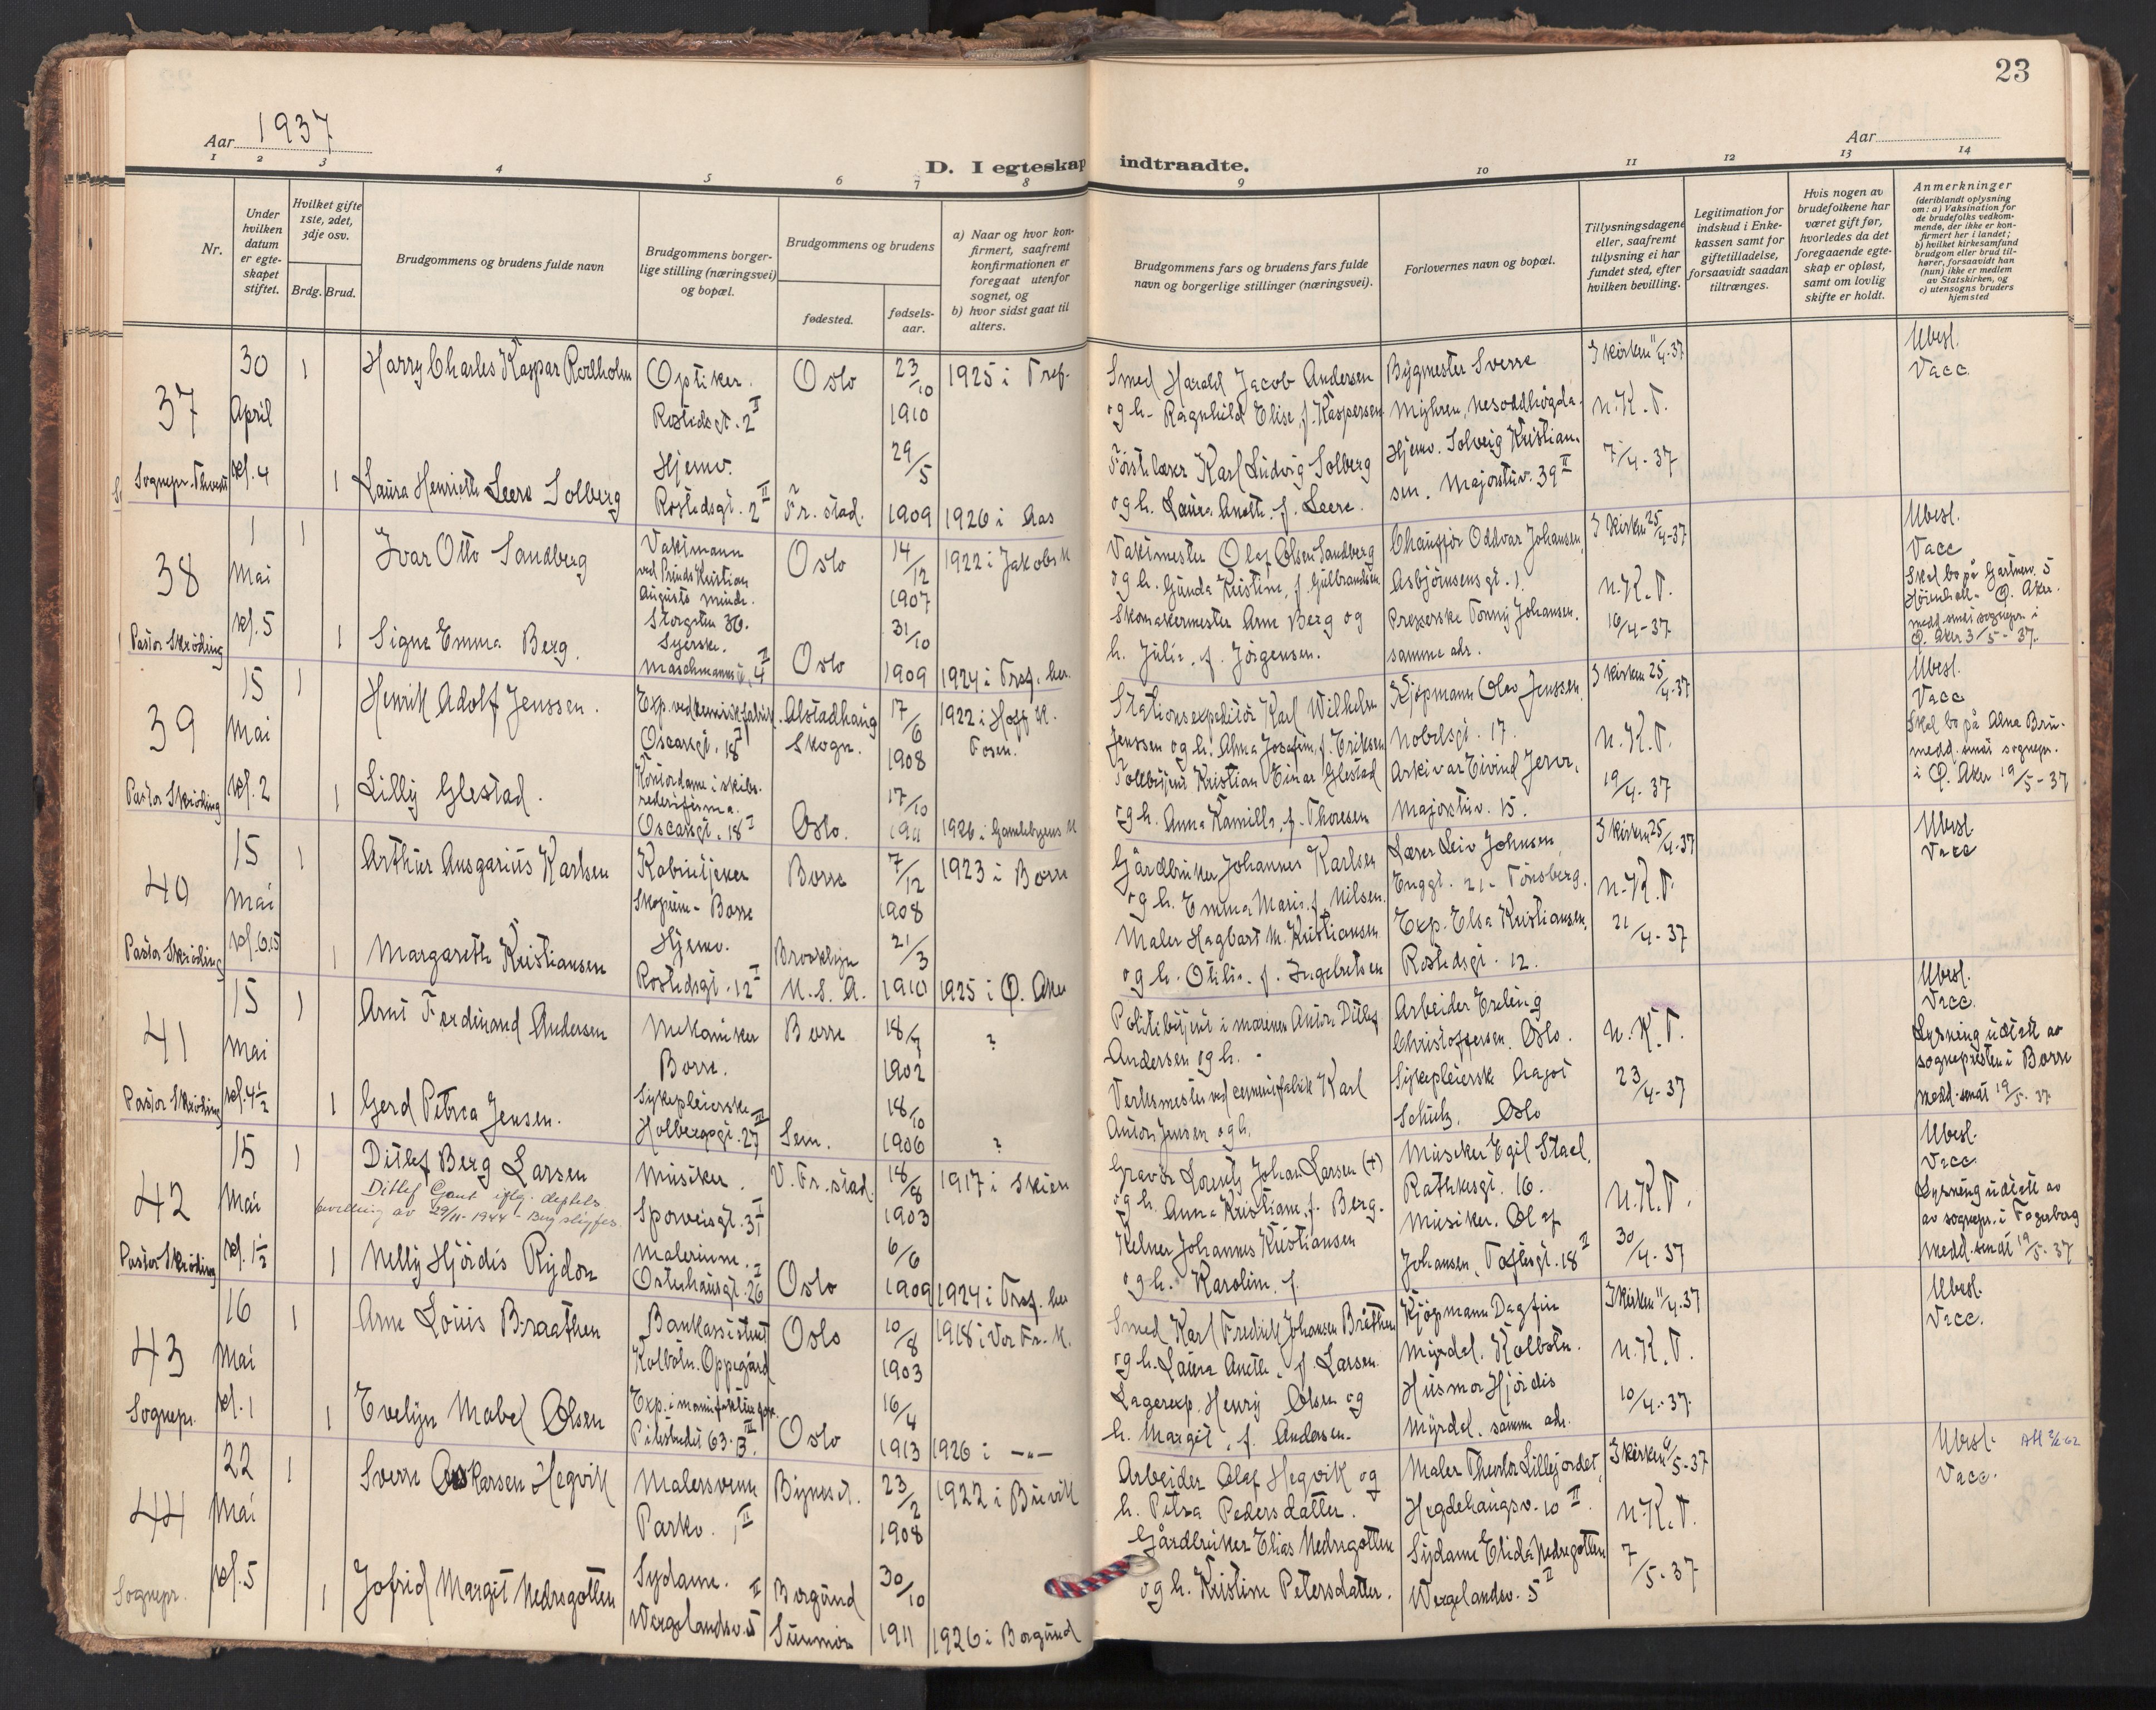 23
Aar 1937
Aar
D. I egteskap indtraadte.
1 2 3 4 5 6 7 8 9 10 11 12 13 14
Nr.
Under hvilken datum er egte-skapet stiftet.
Hvilket gifte 1ste, 2det, 3dje osv.
Brdg. Brud.
Brudgommens og brudens fulde navn
Brudgommens borger-lige stilling (næringsvei) og bopæl.
Brudgommens og brudens
fødested.
fødsels-aar.
a) Naar og hvor kon-firmert, saafremt konfirmationen er foregaat utenfor sognet, og
b) hvor sidst gaat til alters.
Brudgommens fars og brudens fars fulde navn og borgerlige stillinger (næringsvei).
Forlovernes navn og bopæl.
Tillysningsdagene eller, saafremt tillysning ei har fundet sted, efter hvilken bevilling.
Legitimation for indskud i Enke-kassen samt for giftetilladelse, forsaavidt saadan tiltrænges.
Hvis nogen av brudefolkene har været gift før, hvorledes da det foregaaende egte-skap er opløst, samt om lovlig skifte er holdt.
Anmerkninger (deriblandt oplysning om: a) Vaksination for de brudefolks vedkom-mende, der ikke er kon-firmert her i landet; b) hvilket kirkesamfund brudgom eller brud til-hører, forsaavidt han (hun) ikke er medlem av Statskirken, og c) utensogns bruders hjemsted
37
30 April kl. 4
1
Harry Charles Kaspar Rodholm
Optiker. Rostedsgt. 2 II
Oslo
23/10 1910
1925 i Tref.
Smed Harald Jacob Andersen og h. Ragnhild Elise, f. Kaspersen
Bygmester Sverre Myhren, Nesoddhøgda.
I kirken 11/4-37
N.K.T.
7/4-37
Ubesl. Vacc.
Sognepr.
1
Laura Henriette Leere Solberg
Hjemv. Rostedsgt. 2 II
Fr.stad.
29/5 1909
1926 i Aas
Førstelærer Karl Ludvig Solberg og h. Laura Anette. f. Leere.
Hjemv. Solveig Kristiansen. Majorstuv. 39 II
38
1 Mai kl. 5
1
Ivar Otto Sandberg
Vaktmann ved Prinds Kristian Augusts minde. Storgaten 36.
Oslo
14/12 1907
1922 i Jakobs K
Vaktmester Olaf Olsen Sandberg og h. Gunda Kristine, f. Gulbrandsen
Chauffør Oddvar Johansen, Asbjørnsensgt. 1.
I kirken 25/4-37
N.K.T.
16/4-37
Ubesl. Vacc
Skal bo på Gartnerv. 5
Ø. Aker.
medd. sendt sognepr. i Ø. Aker 3/5-37.
Pastor Skrøding
1
Signe Emma Berg.
Syerske. Maschmannsg. 4 II
Oslo
31/10 1909
1924 i Tref. her.
Skomakermester Arne Berg og h. Julie, f. Jørgensen.
Presserske Tonny Johansen. samme adr.
39
15 Mai kl. 2
1
Henrik Adolf Jenssen.
Exp. ved kemisk fabrik. Oscarsgt. 18 I
Alstadhaug Skogn.
17/6 1908
1922 i Hoff K. Toten.
Stationsexpeditør Karl Wilhelm Jenssen og h. Alma Josefine, f. Eriksen
Kjøpmann Olav Jenssen, Nobelsgt. 17.
I kirken 25/4-37
N.K.T.
19/4-37
Ubesl. Vacc
Skal bo på Alna Bru.
medd. sendt sognepr. i Ø. Aker 19/5-37
Pastor Skrøding
1
Lilly Glestad.
Kontordame i skibsrederifirma. Oscarsgt. 18 I
Oslo.
17/10 1911
1926 i Gamlebyens K
Tollbetjent Kristian Einar Glestad og h. Anna Kamilla, f. Thoresen
Arkivar Eivind Jever, Majorstuv. 15.
40
15 Mai kl. 6.15
1
Arthur Ansgarius Karlsen
Kabinetjeker Skoppum - Borre
Borre
7/12 1908
1923 i Borre
Gårdbruker Johannes Karlsen og h. Emma Marie, f. Nilsen.
Lærer Leiv Johnsen, Enggt. 21 - Tønsberg.
I kirken 25/4-37
N.K.T.
21/4-37
Ubesl. Vacc
Pastor Skrøding
1
Margareth Kristiansen
Hjemv. Rostedsgt. 12 I
Brooklyn U.S.A.
21/3 1910
1925 i Ø. Aker
Maler Hagbart M. Kristiansen og h. Otilie. f. Ingebretsen
Exp. Elsa Kristiansen, Rostedsgt. 12.
41
15 Mai kl. 4 1/2
1
Arnt Ferdinand Andersen
Mekaniker Borre.
Borre
18/7 1902
?
Politibetjent i marinen Anton Ditlef Andersen og h. -
Arbeider Erling Christoffersen. Oslo.
N.K.T.
23/4-37
Ubesl. Vacc.
Lysning utstedt av sognepresten i Borre
medd. sendt 19/5-37
Pastor Skrøding
1
Gerd Petrea Jensen.
Sykepleierske Holbergsgt. 27 III
Sem.
18/10 1906
?
Verksmester ved cementfabrik Karl Anton Jensen og h.
Sykepleierske Aagot Schulz. Oslo
42
15 Mai kl. 1 1/2
1
Ditlef Berg Larsen
Ditlef Gaut iflg. deptets bevilling av 29/11-1944 - Berg sløyfes.
Musiker. Sporveisgt. 31 I
V. Fr.stad.
18/8 1903
1917 i Skien
Gravør Lorentz Johan Larsen (+) og h. Anna Kristiane, f. Berg.
Musiker Egil Stael, Rathkesgt. 16.
N.K.T.
30/4-37
Ubesl. Vacc
Lysning utstedt av av sognepr. i Fagerborg
medd. sendt 19/5-37
Pastor Skrøding
1
Nelly Hjørdis Rydon
Malerinne. Osterhausgt. 26 I
Oslo
6/6 1909
1924 i Tref. her
Kelner Johannes Kristiansen og h. Karoline, f.
Musiker. Olaf Johansen, Toftesgt. 18 II
43
16 Mai kl. 1
1
Arne Louis Braathen
Bankassistent Kolbotn. Oppegård
Oslo
10/8 1903
1918 i Vor Fr. K.
Smed Karl Fredrik Johansen Bråthen og h. Laura Anette, f. Larsen.
Kjøpmann Dagfin Myrdal, Kolbotn.
I kirken 11/4-37
N.K.T.
10/4-37.
Ubesl. Vacc.
Sognepr.
1
Evelyn Mabel Olsen
Exp. i manufakturgesj. Pilestredet 63 B. III
Oslo
16/4 1913
1926 i -"-
Lagerexp. Henry Olsen og h. Margit, f. Andersen.
Husmor Hjørdis Myrdal. samme adr.
44
22 Mai kl. 5
1
Sverre Oskarsen Hegvik
Malersvenn Parkv. 1 II
Bynes d.
23/2 1908
1922 i Buvik
Arbeider Olaf Hegvik og h. Petra Pedersdatter.
Maler Theodor Lillejordet, Hegdehaugsv. 10 II.
I kirken 9/5-37
N.K.T.
7/5-37
Ubesl. Vacc.
Sognepr.
1
Jofrid Margit Nedregotten
Sydame. Wergelandsv. 5 II
Borgund Sunmør
30/10 1911
1926 i Borgund
Gårdbruker Elias Nedregotten og h. Kristine Petersdatter.
Sydame Elida Nedregotten Wergelandsv. 5 II